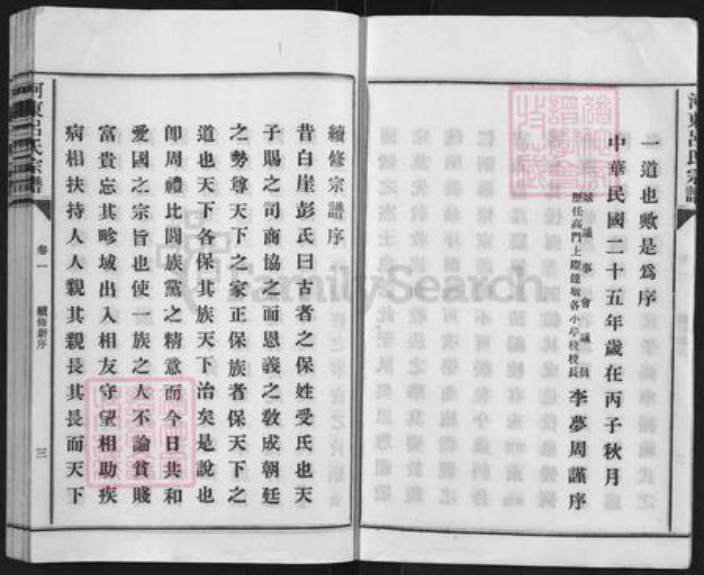 一道也歟是爲序
中華民國二十五年歲在丙子秋月
城議事會議員
歷任高門上慶達敏各小學校校長 李夢周謹序
河東呂氏宗譜
續修宗譜序
昔白崖彭氏曰古者之保姓受氏也天
子賜之司商協之而恩義之敎成朝廷
之勢尊天下之家正保族者保天下之
道也天下各保其族天下治矣是說也
卽周禮比閭族黨之精意而今日共和
愛國之宗旨也使一族之人不論貧賤
富貴忘其畛域出入相友守望相助疾
病相扶持人人親其親長其長而天下
河東呂氏宗譜
卷一
續修新序
三
FamilySearch